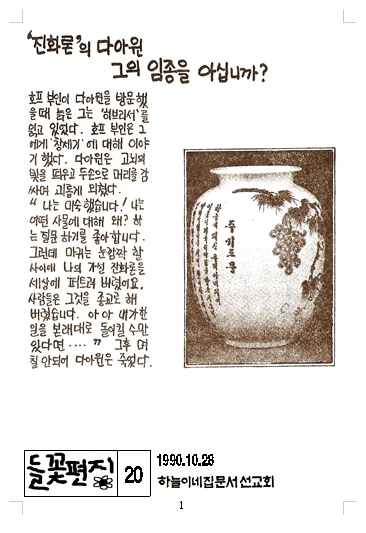 '진화론'의 다아윈
그의 임종을 아십니까?
호프 부인이 다아윈을 방문했
을때 늙은 그는 '히브리서'를
읽고 있었다. 호프 부인은 그
에게 '창세기'에 대해 이야
기 했다. 다아윈은 고뇌의
빛을 띄우고 두손으로 머리를 감
싸며 괴롭게 외쳤다.
"나는 미숙했습니다! 나는
어떤 사물에 대해 왜? 하
는 질문 하기를 좋아합니다.
그런데 마귀는 눈깜짝 할
사이에 나의 가설 진화론을
세상에 퍼트려 버렸어요.
사람들은 그것을 종교로 해
버렸습니다. 아 아 내가 한
일을 본래대로 돌이킬 수만
있다면 ‥‥" 그후 며
칠 안되어 다아윈은 죽었다.
들꽃편지
20
1990.10.28
하늘이네집문서선교회
1